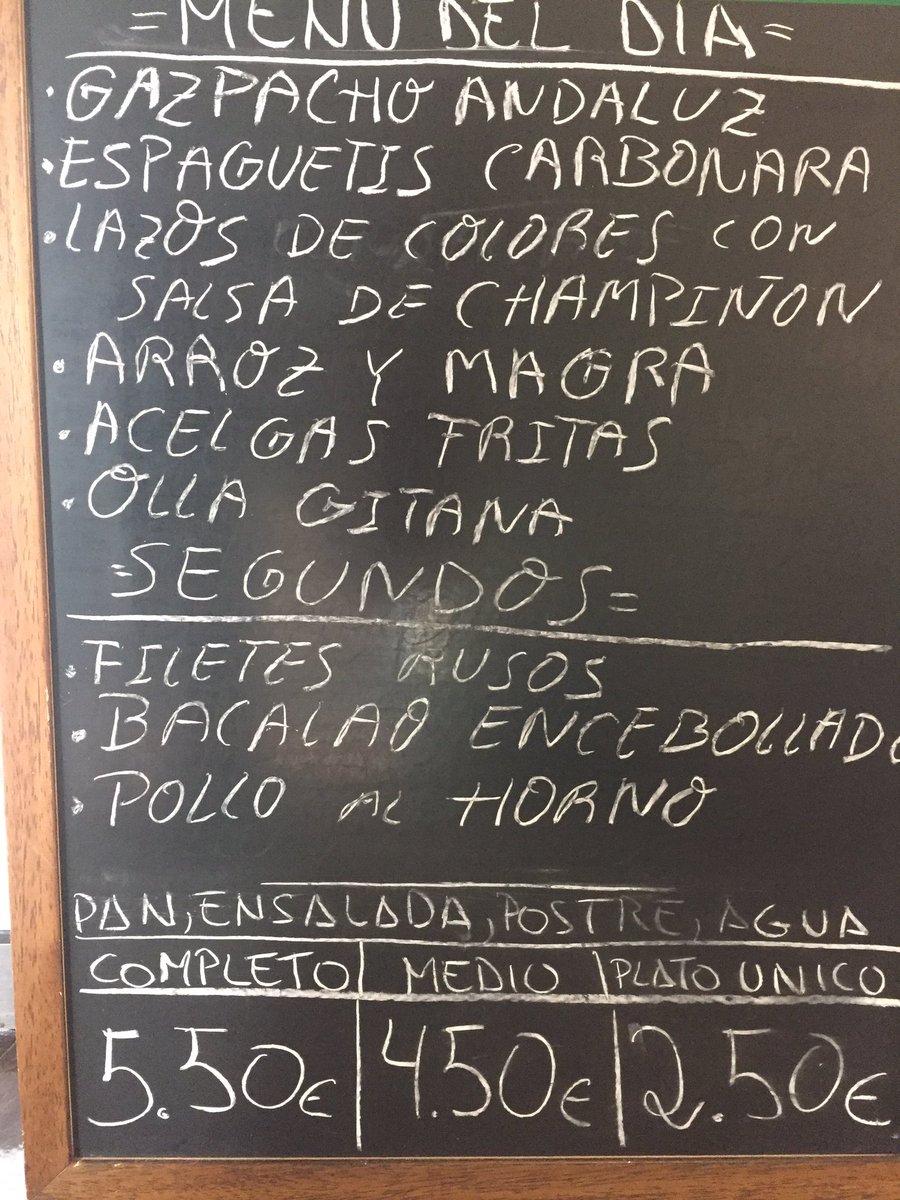 =MENU DEL DIA=
·GAZPACHO ANDALUZ
·ESPAGUETIS CARBONARA
·LAZOS DE COLORES CON
SALSA DE CHAMPIÑON
·ARROZ Y MAGRA
·ACELGAS FRITAS
·OLLA GITANA
=SEGUNDOS=
·FILETES RUSOS
·BACALAO ENCEBOLLADO
·POLLO AL HORNO
PAN, ENSALADA, POSTRE, AGUA
COMPLETO MEDIO PLATO UNICO
5.50€ 4.50€ 2.50€